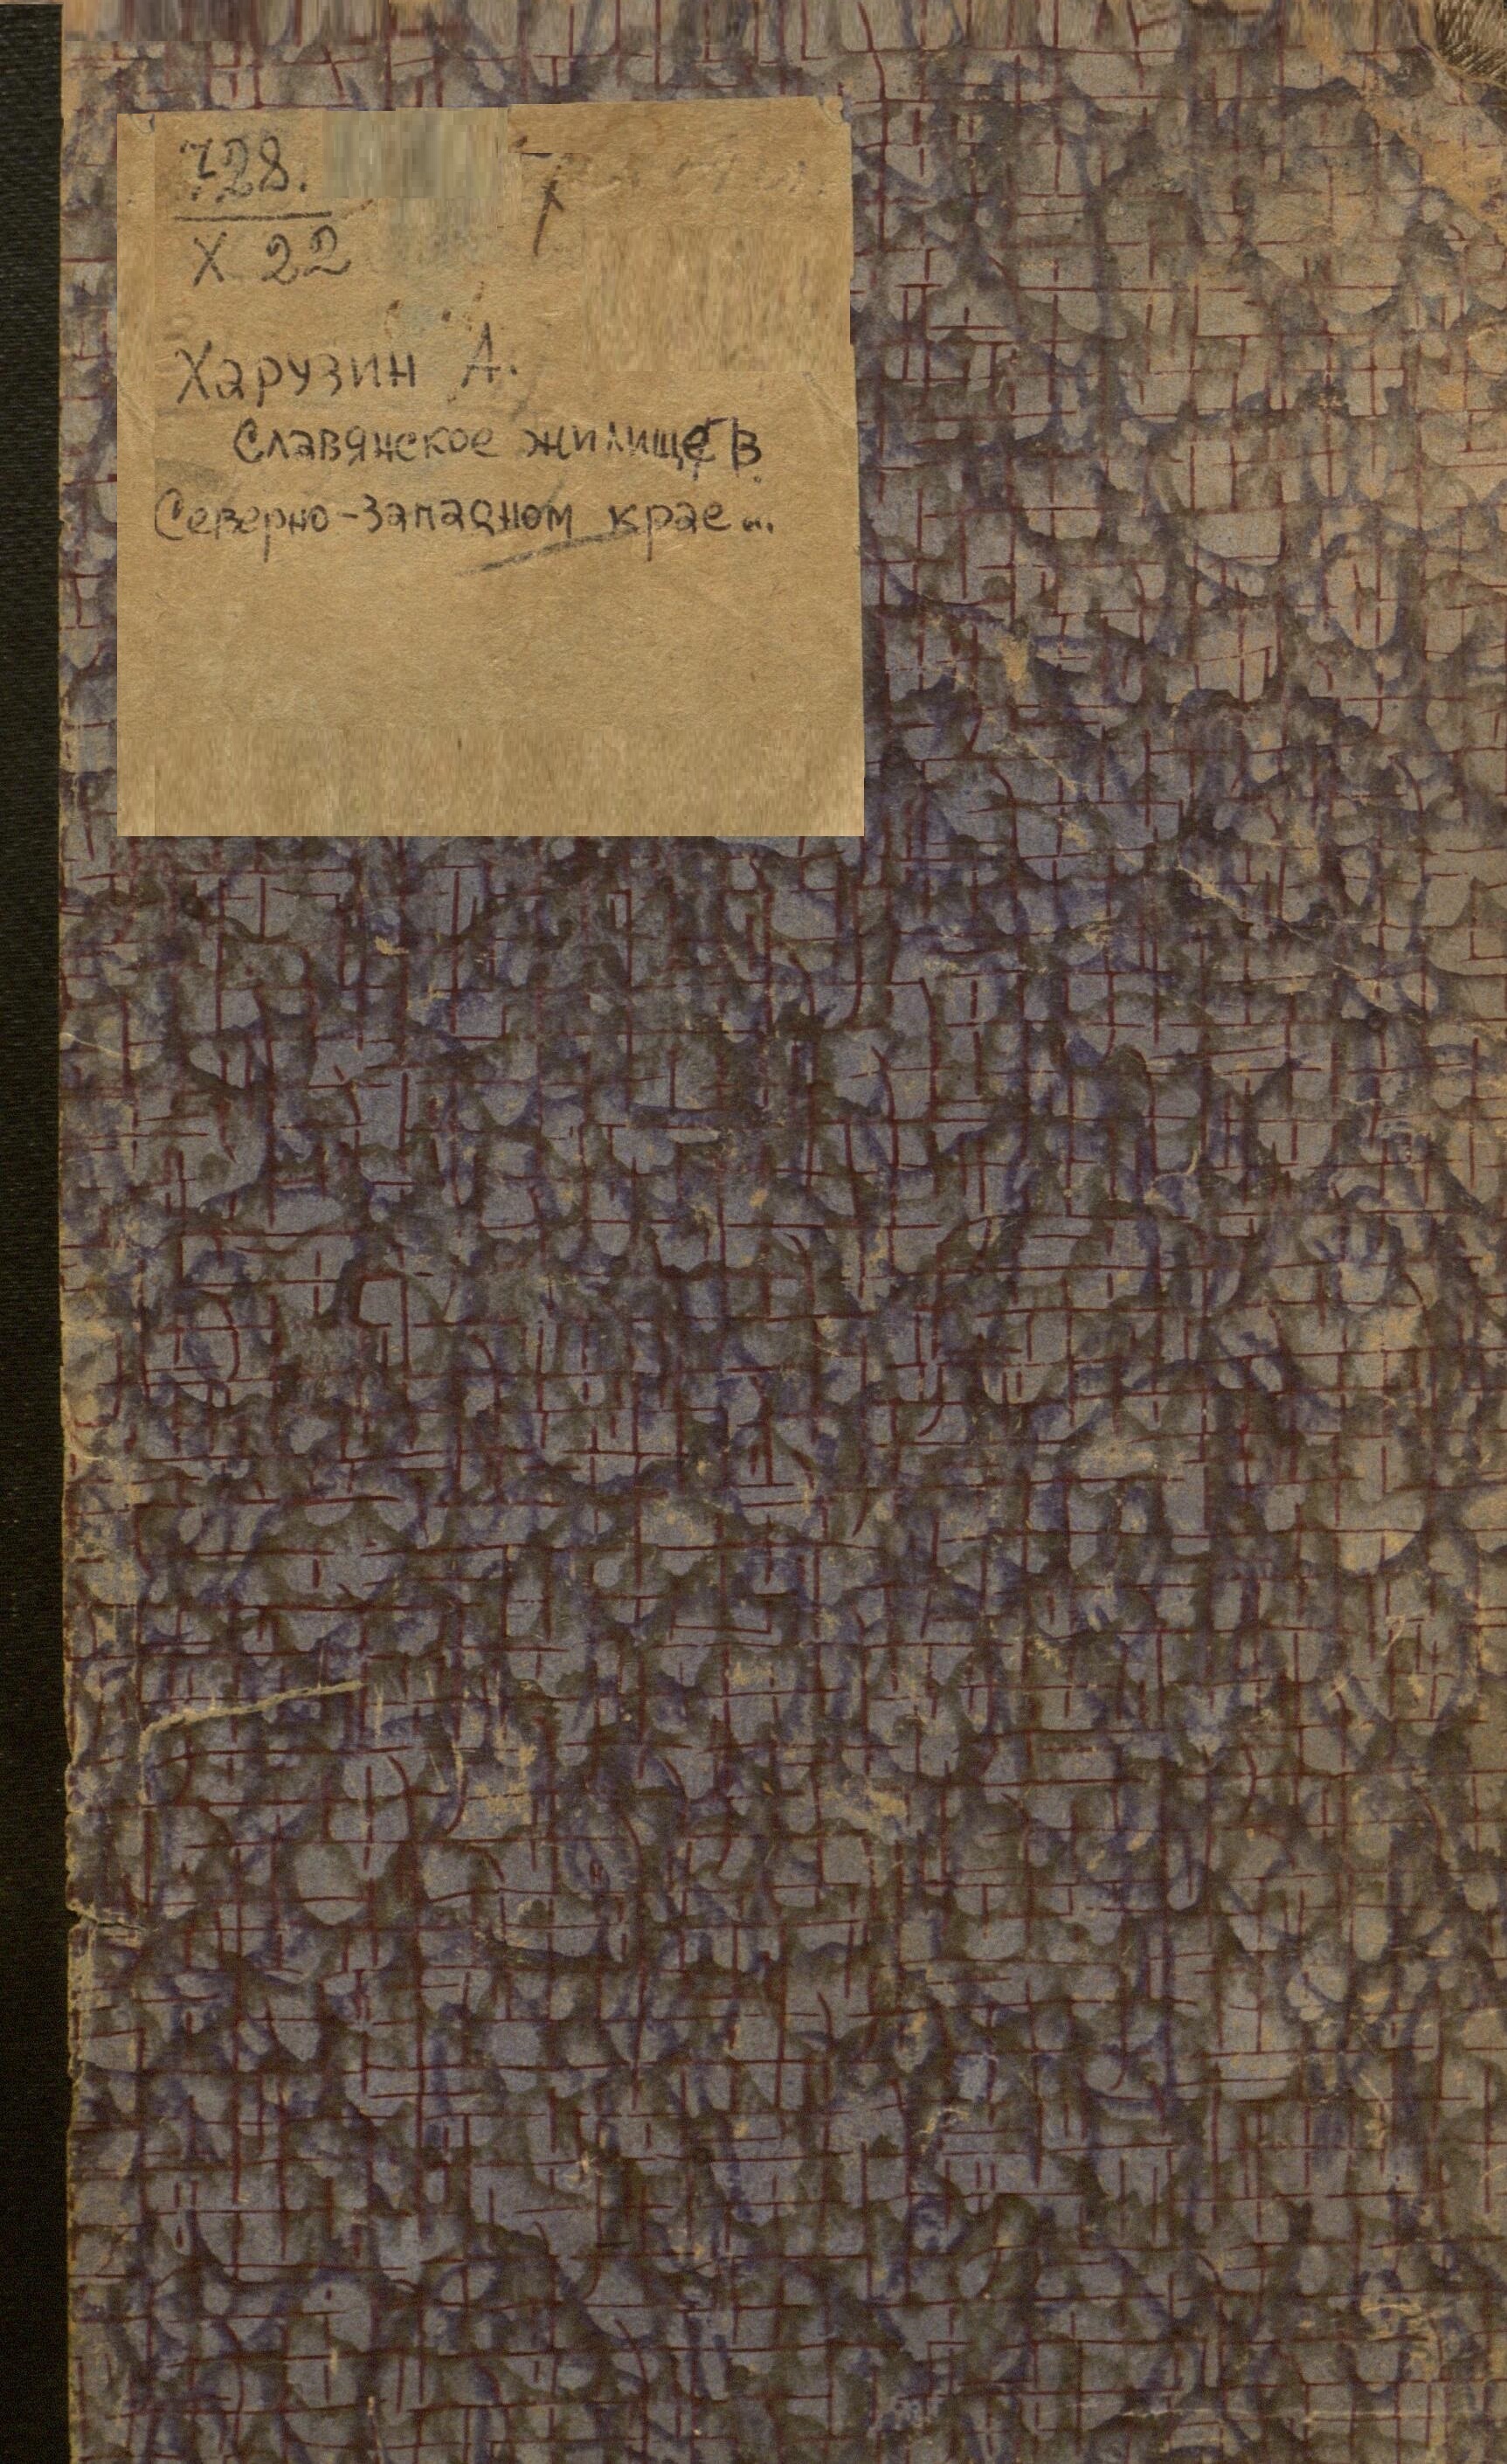 728.
X 22
Харузин А.
Славянское жилище в
Северно-Западном крае...